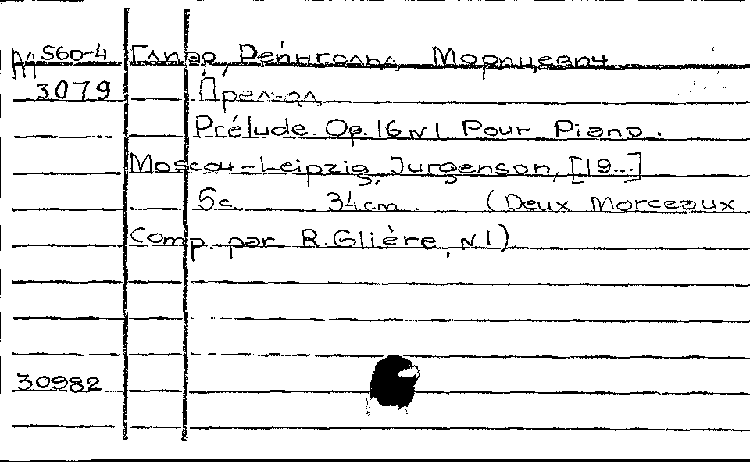 М560-4 Глиэр, Рейнгольд Морицевич
3079 Прелюд
Prélude. Op. 16 N1 Pour Piano.
Moscou-Leipzig, Jurgenson, [19...]
5c 34cm (Deux Morceaux
comp. par R. Glière, N1)
30982